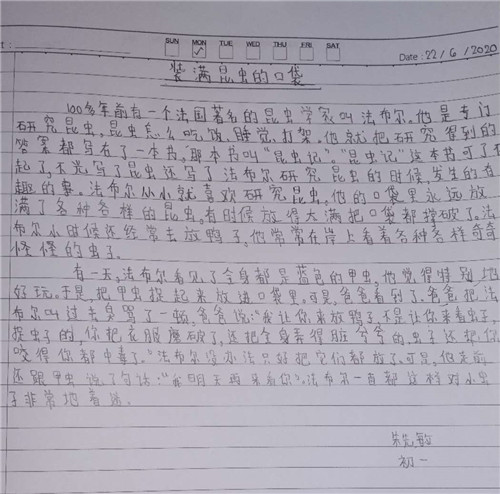 SUN MON TUE WED THU FRI SAT
Date: 22/6/2020
装满昆虫的口袋
100多年前有一个法国著名的昆虫学家叫法布尔。他是专门
研究昆虫，昆虫怎么吃饭、睡觉、打架。他就把研究得到的
答案都写在了一本书，那本书叫“昆虫记”。“昆虫记”这本书可了不
起了，不光写了昆虫还写了法布尔研究昆虫的时候，发生的有
趣的事。法布尔从小就喜欢研究昆虫，他的口袋里永远放
满了各种各样的昆虫，有时候放得太满把口袋都撑破了。法
布尔小时候还经常去放鸭子，他常常在岸上看着各种各样奇奇
怪怪的虫子。
有一天，法布尔看见了全身都是蓝色的甲虫，他觉得特别地
好玩。于是，把甲虫捉起来放进口袋里。可是，爸爸看到了，爸爸把法
布尔叫过去身骂了一顿，爸爸说：“我让你来放鸭子，不是让你来看虫子，
捉虫子的，你把衣服磨破了，还把全身弄得脏兮兮的虫子还把你
咬得你都中毒了。”法布尔没办法只好把它们都放了，可是，他走前
还跟甲虫说了句话：“我明天再来看你”。法布尔一直都这样对小虫
子非常地着迷。
敏
初一